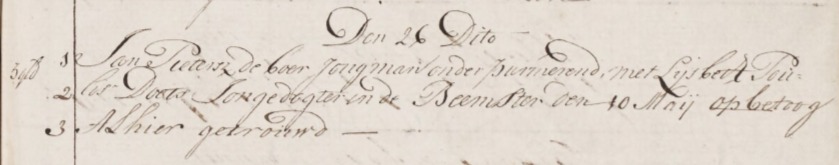 Den 26 Dito
1 Jan Pietersz de boer Jongman onder purmerend, met Lijsbeth Pou-
2 los Doets Jonge dogter in de Beemster den 10 Maij op betoog
3 Alhier getrouwd —